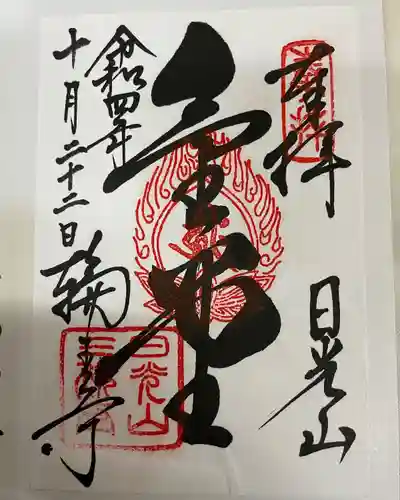 奉拝
日光山
金堂
令和四年
十月二十二日
輪王寺
日光山